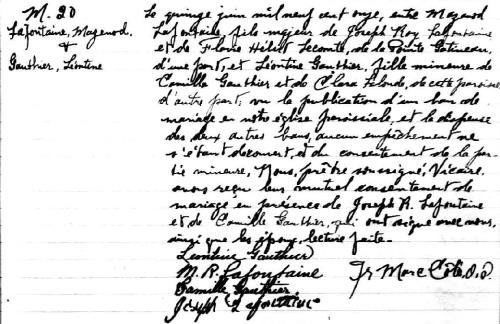 M. 20
Lafontaine, Mazenod.
&
Gauthier, Léontine
Le quinze juin mil neuf cent onze, entre Mazenod
Lafontaine, fils majeur de Joseph Roy Lafontaine
et de Flavie Hébert Lecomte, de la Pointe Gatineau,
d'une part, et Léontine Gauthier, fille mineure de
Camille Gauthier et de Clara Lalonde, de cette paroisse
d'autre part, vu la publication d'un ban de
mariage en notre église paroissiale, et la dispense
des deux autres bans, aucun empêchement ne
s'étant découvert, et du consentement de la par-
tie mineure, Nous, prêtre soussigné, Vicaire,
avons reçu leur mutuel consentement de
mariage en présence de Joseph R. Lafontaine
et de Camille Gauthier, qui ont signé avec nous,
ainsi que les époux, lecture faite.
Léontine Gauthier
M. R. Lafontaine
Camille Gauthier
Joseph Lafontaine
Fr Marc Côté, O.P.